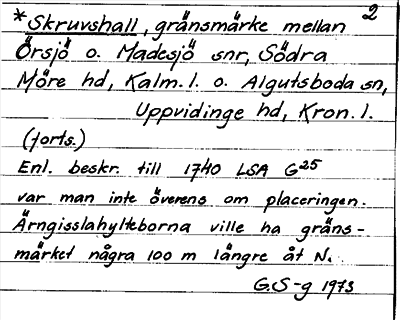 *Skruvshall, gränsmärke mellan 2
Örsjö o. Madesjö snr, Södra
Möre hd, Kalm. l. o. Algutsboda sn,
Uppvidinge hd, Kron. l.
(forts.)
Enl. beskr. till 1740 LSA G25
var man inte överens om placeringen.
Ärngisslahylteborna ville ha gräns-
märket några 100 m längre åt N.
G.S-g 1973